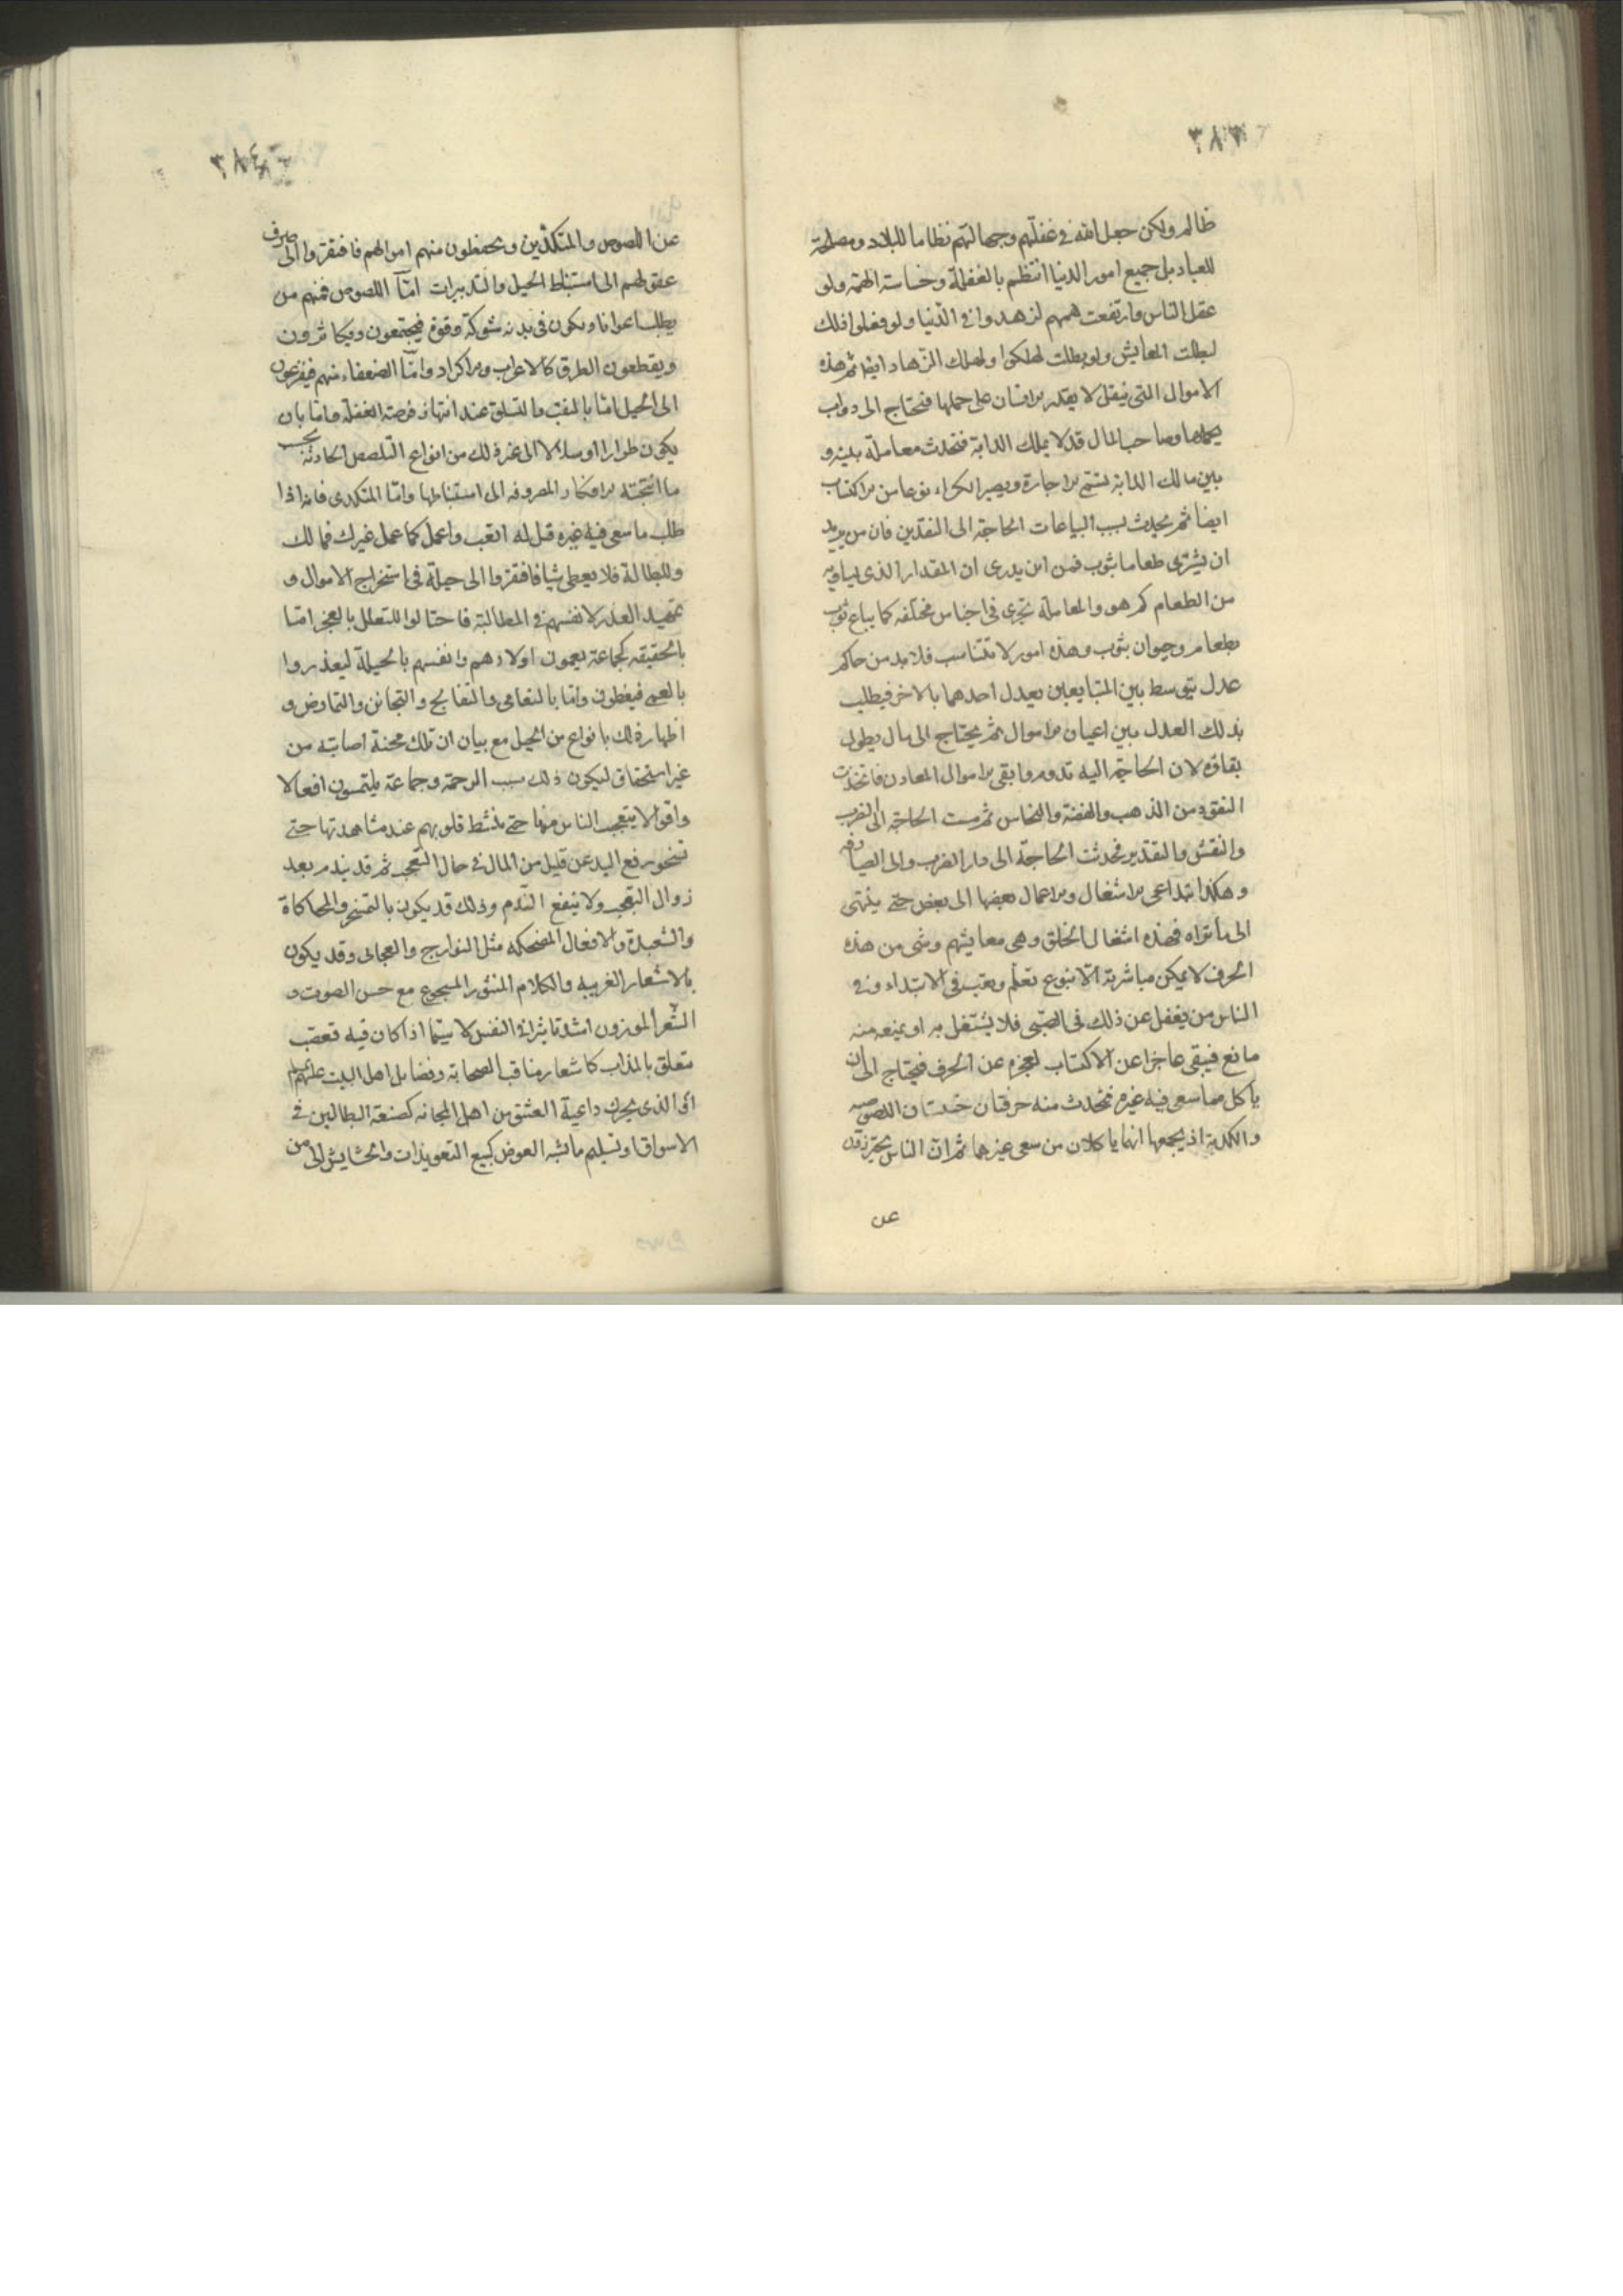 ٣٨٣
ظالم ولكن جعل الله فى غفلتهم وجهالتهم نظاما للبلاد ومصلحة
للعباد بل جميع امور الدنيا انتظم بالغفلة وخساسة الهمة ولو
عقل الناس وارتفعت هممهم لزهدوا فى الدنيا ولو فعلوا ذلك
لبطلت المعايش ولو بطلت لهلكوا ولهلك الزهاد ايضا ثم هذه
الاموال التى ينقل لا يقدر الانسان على حملها فتحتاج الى دواب
يحملها وصاحب المال قد لا يملك الدابة فتحدث معاملة بينه و
بين مالك الدابة تسمى الاجارة ويصير الكراء نوعا من الاكتساب
ايضا ثم يحدث بسبب البياعات الحاجة الى النقدين فان من يريد
ان يشترى طعاما بثوب فمن اين يدرى ان المقدار الذى يساويه
من الطعام كم هو والمعاملة تجرى فى اجناس مختلفه كما يباع ثوب
بطعام وحيوان بثوب وهذه امور لا تتناسب فلا بد من حاكم
عدل يتوسط بين المتبايعين يعدل احدهما بالاخر فيطلب
بذلك العدل بين اعيان الاموال ثم يحتاج الى مال يطول
بقاؤه لان الحاجة اليه تدوم وابقى الاموال المعادن فاتخذت
النقود من الذهب والفضة والنحاس ثم مست الحاجة الى الضرب
والنقش والتقدير فحدثت الحاجة الى دار الضرب والى الصيارفه
وهكذا يتداعى الاشغال والاعمال بعضها الى بعض حتى ينتهى
الى ما تراه فهذه اشغال الخلق وهى معايشهم وشى من هذه
الحرف لا يمكن مباشرته الا بنوع تعلم وتعب فى الابتداء وفى
الناس من يغفل عن ذلك فى الصبى فلا يشتغل به او يمنعه منه
مانع فيبقى عاجزا عن الاكتساب لعجزه عن الحرف فيحتاج الى ان
ياكل مما سعى فيه غيره فتحدث منه حرفتان خسيستان اللصوصيه
والكدية اذ يجمعها انهما ياكلان من سعى غيرهما ثم ان الناس يحترزون
عن
٣٨٤
عن اللصوص والمتكدين ويحفظون منهم اموالهم فافتقروا الى صرف
عقولهم الى استنباط الحيل والتدبيرات اما اللصوص فمنهم من
يطلب اعوانا ويكون فى بدنه شوكة وقوة فيجتمعون ويتكاثرون
ويقطعون الطرق كالاعراب والاكراد واما الضعفاء منهم فيفزعون
الى الحيل اما بالنقب والتسلق عند انتهاز فرصة الغفلة واما بان
يكون طرارا او سلالا الى غير ذلك من انواع التلصص الحادثة بحسب
ما انتجته الافكار المصروفه الى استنباطها واما المتكدى فانه اذا
طلب ما سعى فيه غيره قيل له اتعب واعمل كما عمل غيرك فما لك
وللبطالة فلا يعطى شيا فافتقروا الى حيلة فى استخراج الاموال و
تمهيد العذر لانفسهم فى المطالبة فاحتالوا للتعلل بالعجز اما
بالحقيقه كجماعة يعمون اولادهم وانفسهم بالحيلة ليعذروا
بالعمى فيعطون واما بالتعامى والتفالج والتجانن والتمارض و
اظهار ذلك بانواع من الحيل مع بيان ان تلك محنة اصابته من
غير استحقاق ليكون ذلك سبب الرحمة وجماعة يلتمسون افعالا
واقوالا يتعجب الناس منها حتى ينشط قلوبهم عند مشاهدتها حتى
تسخو برفع اليد عن قليل من المال فى حال التعجب ثم قد يندم بعد
زوال التعجب ولا ينفع الندم وذلك قد يكون بالتمسخر والمحاكاة
والشعبذة والافعال المضحكه مثل وقد يكون
بالاشعار الغريبه والكلام المنثور المسجوع مع حسن الصوت و
الشعر الموزون اشد تاثيرا فى النفس لا سيما اذا كان فيه تعصب
متعلق بالمذاهب كاشعار مناقب الصحابة وفضايل اهل البيت عليهم السلام
او الذى يحرك داعية العشق من اهل المجانه كصنعة الطبالين فى
الاسواق او تسليم ما يشبه العوض كبيع التعويذات والحشايش الى من